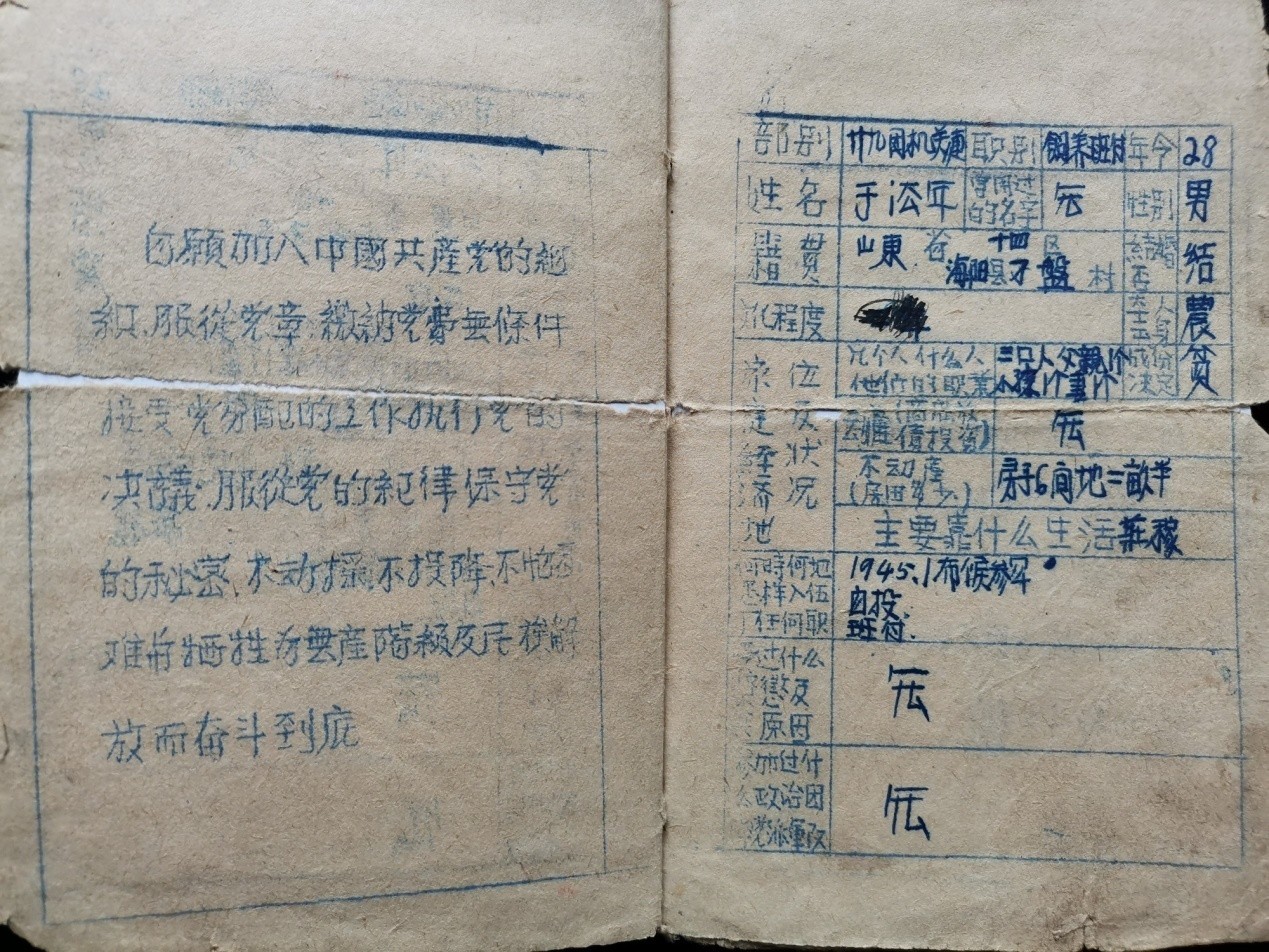 自願加入中國共產党的組
織,服從党章,繳納党費無條件
接受党分配的工作执行党的
决議,服從党的紀律保守党
的秘密、不动摇,不投降,不怕困
难前牺牲为無產階級及民族解
放而奋斗到底
部别 廿九团机关連 职别 飼养班付 年令 28
姓名 于 年 曾用过的名字 无 性别 男
籍贯 山東省海阳县十四区 盤村 結婚否 結
化程度 本人出身 農
家庭 位及經济状况
几个人什么人他們的职業 三只人父親1个小孩1个妻1个 成份决定 贫
无
不动產(房田多少) 房子6间地二畝半
地 主要靠什么生活 莊稼
何時何地怎样入伍任何职 1945.1 布候参军
自投.
班付.
过什么惩及原因 无
参加过什么政治团党派軍队 无